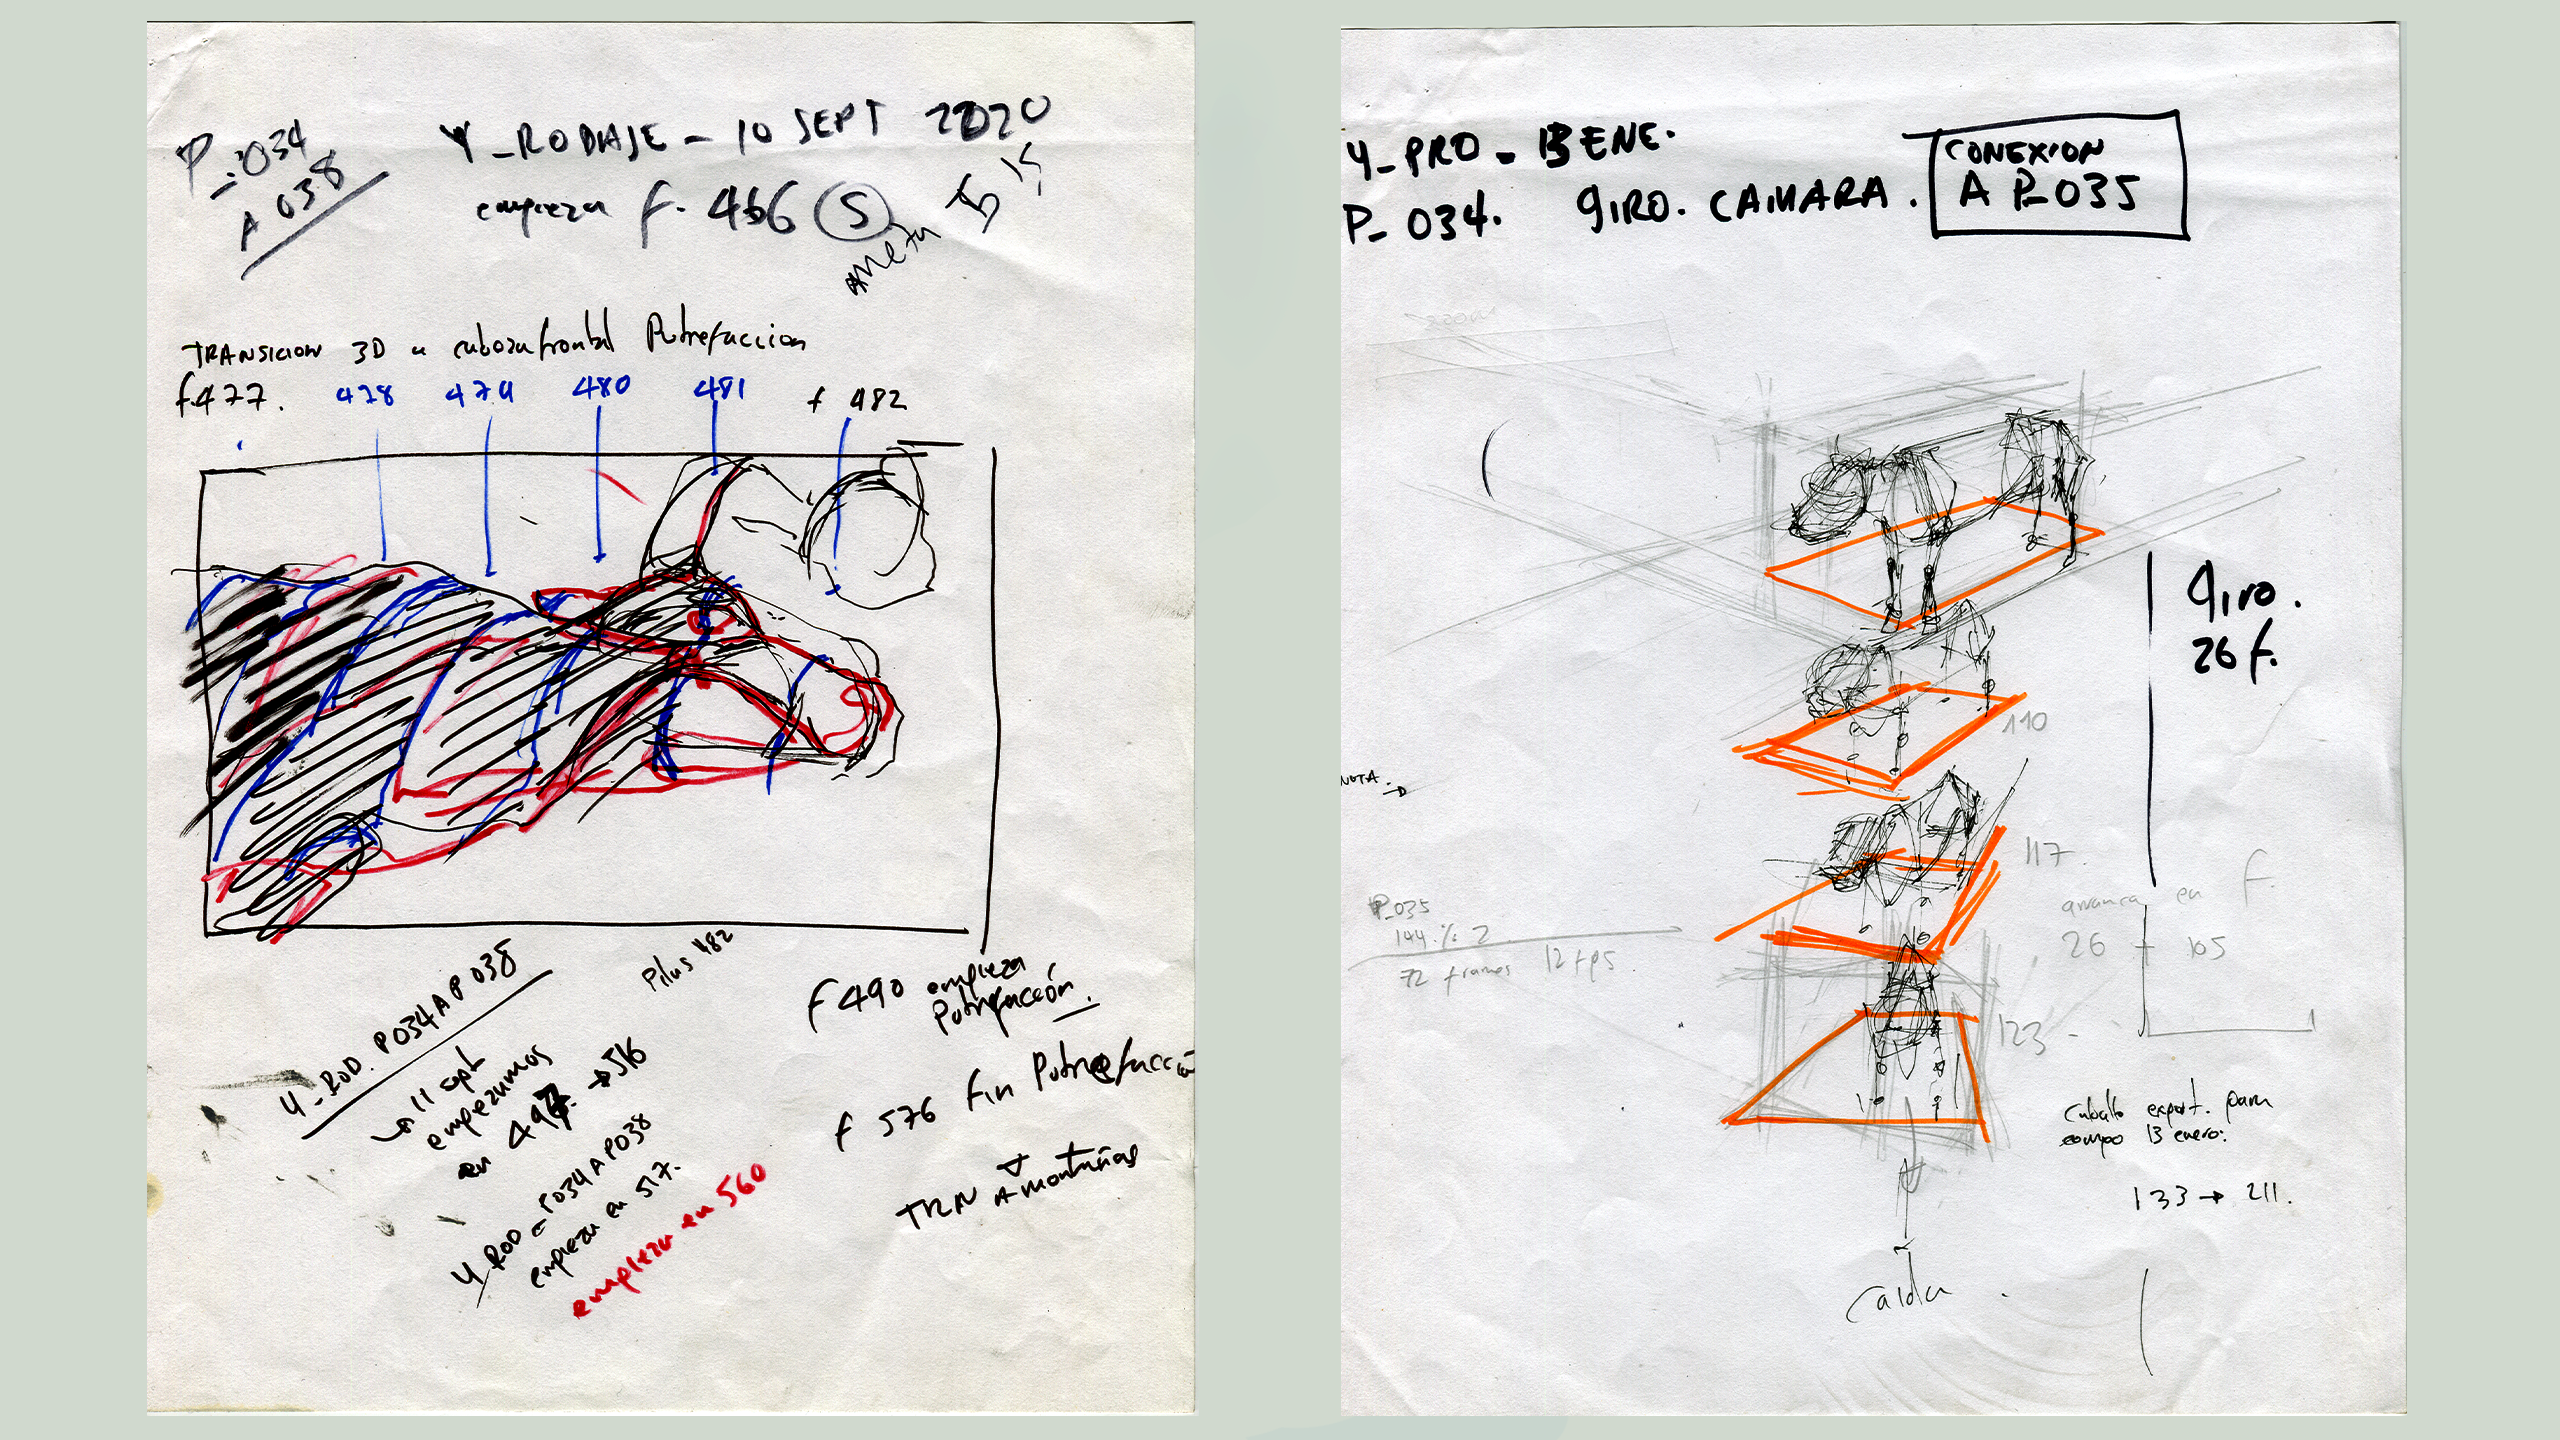 P_034
A 038
Y_RODAJE - 10 SEPT 2020
empieza f. 466 S
TRANSICION 3D a cabeza frontal Putrefaccion
f.477. 478 479 480 481 f 482
Pilus 482
Y_ROD. P034 A P038
11 sept
empezamos
en 497 → 516
Y_ROD_P034 A P038
empieza en 517.
empieza en 560
f 490 empieza
Putrefacción.
f 576 Fin Putrefacción
TRN A montañas
Y_PRO_13 ENE.
P_034. GIRO. CAMARA.
CONEXION
A P_035
zoom
Giro.
26 f.
110
NOTA. →
117.
arranca en f.
26 + 105
P_035
144 % 2
72 frames 12 fps.
123
Caballo export. para
compo 13 enero:
133 → 211.
Caida